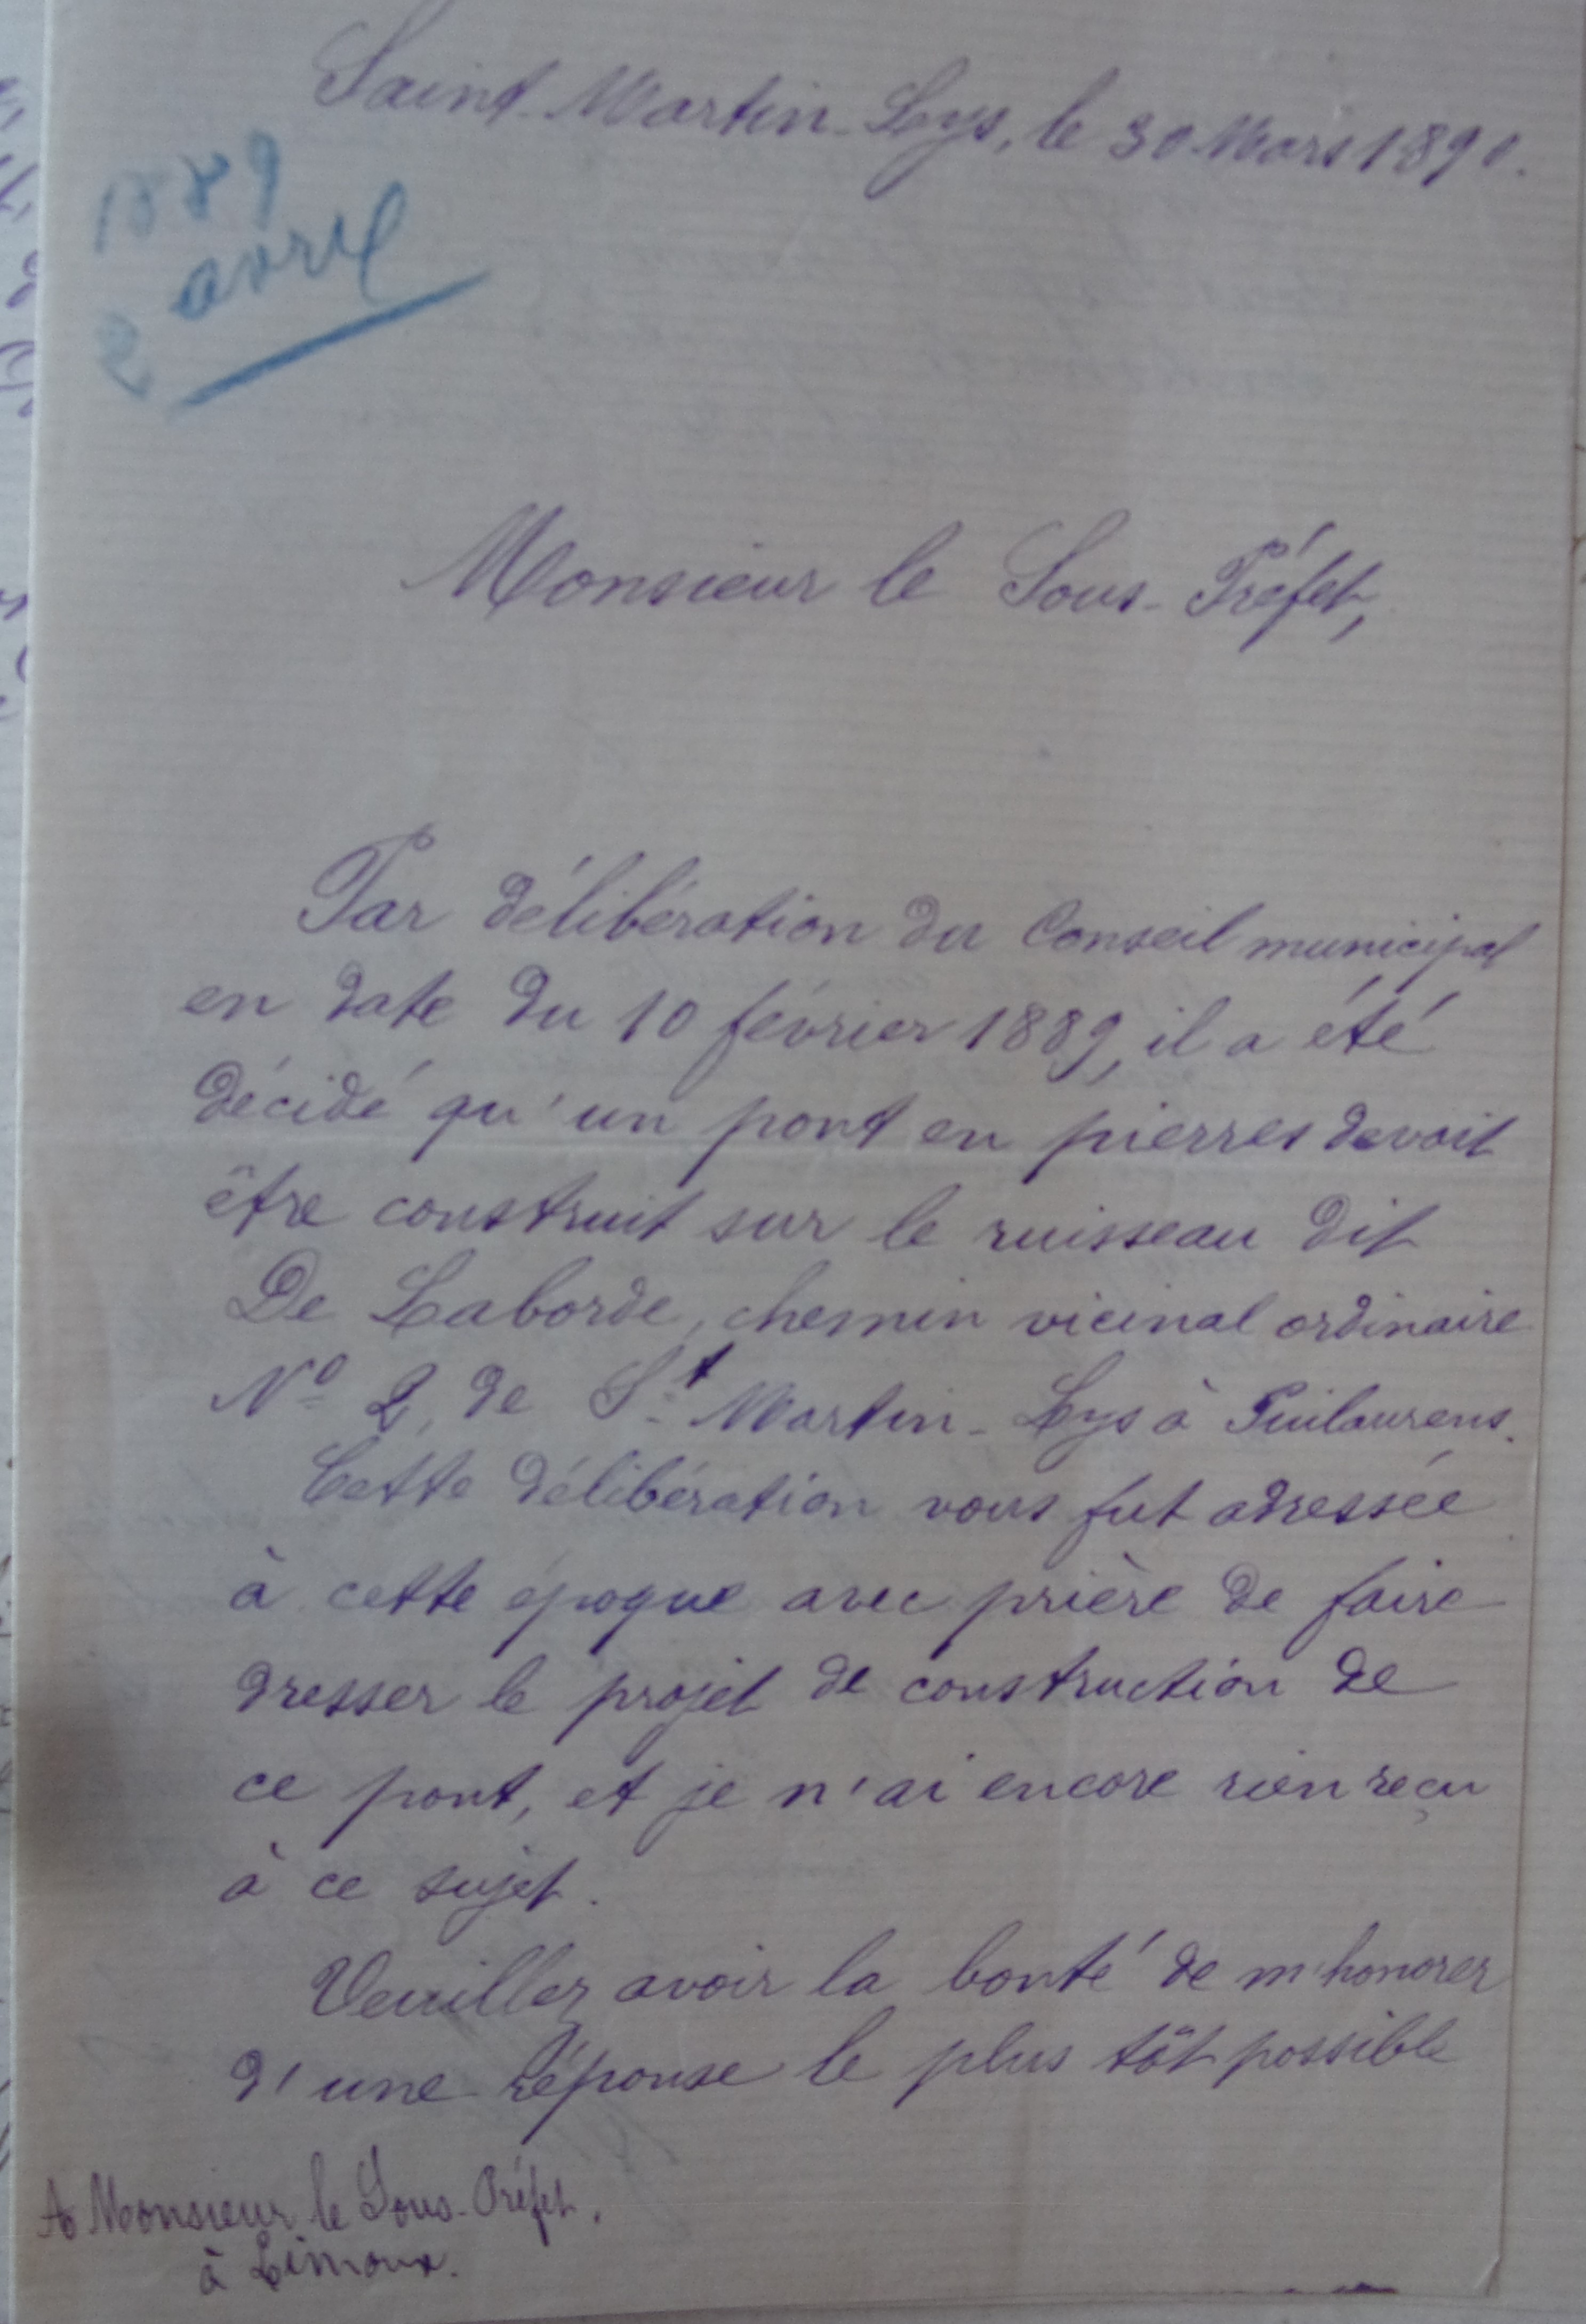 Saint-Martin-Lys, le 30 Mars 1890.
1889
avril
2
Monsieur le Sous-Préfet,
Par délibération du Conseil municipal
en date du 10 février 1889, il a été
décidé qu'un pont en pierres devait
être construit sur le ruisseau dit
De Laborde, chemin vicinal ordinaire
Nº 2, de St Martin-Lys à Puilaurens.
Cette délibération vous fut adressée
à cette époque avec prière de faire
dresser le projet de construction de
ce pont, et je n'ai encore rien reçu
à ce sujet.
Veuillez avoir la bonté de m'honorer
d'une réponse le plus tôt possible
A Monsieur le Sous-Préfet.
à Limoux.